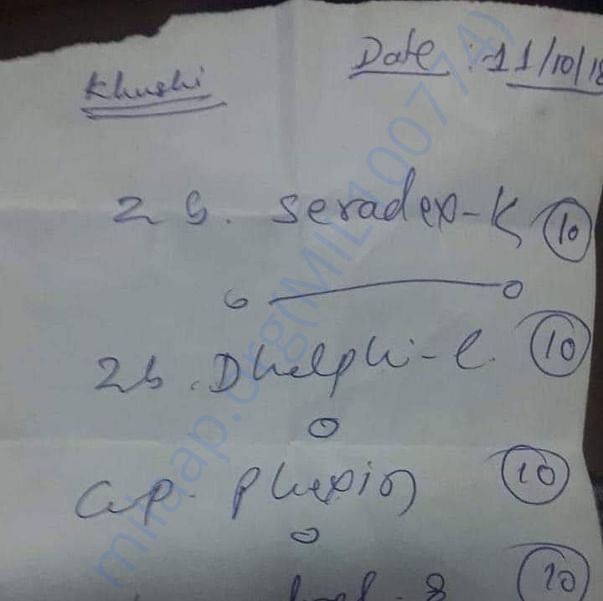 Khushi
Date : 11/10/18
2 b. Seradex-K 10
2 b. Dhelphi-l. 10
Cap. Phexin 10
10
milaap.org(MIL100774)